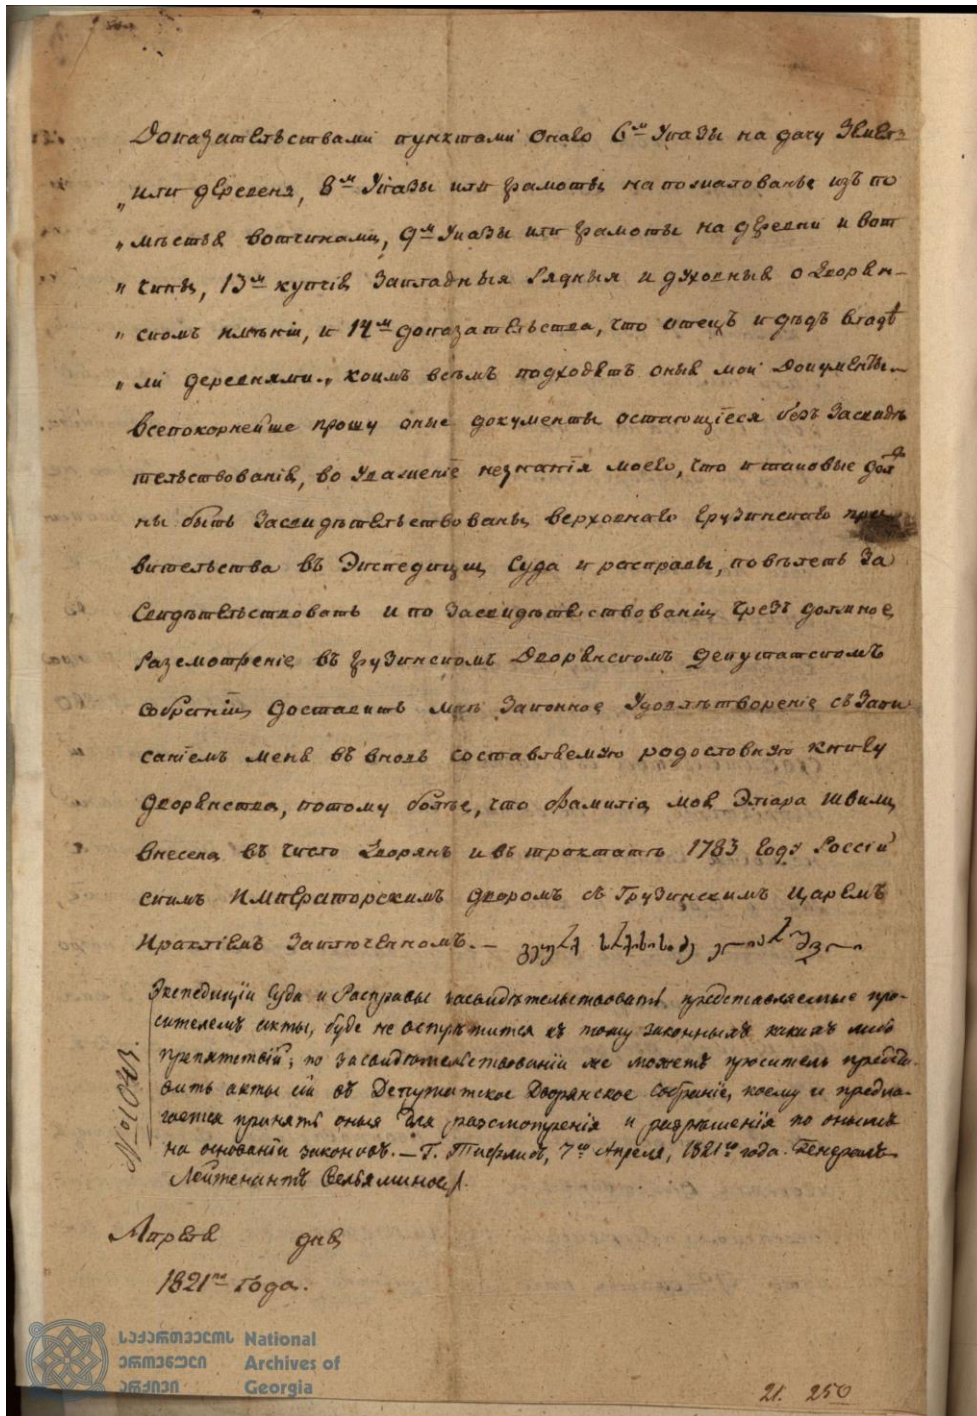 Доказательствами пунктами онаго 6м Указы на дачу земель
„или деревень, 8м Указы или грамоты на пожалованье изъ по
„мѣстья вотчинами, 9м Указы или грамоты на деревни и вот
„чины, 13м купчія закладныя рядныя и духовныя о дворян-
„скомъ имѣніи, и 14м доказательства, что отецъ и дѣдъ владѣ
„ли деревнями„ коимъ всѣмъ подходятъ оныя мои документы.
Всепокорнейше прошу оные документы остающіеся безъ засвидѣ
тельствованія, во уваженіе незнанія моего, что и таковые долж
ны быть засвидѣтельствованы верховнаго грузинскаго пра
вительства въ Экспедиціи Суда и расправы, повѣлеть за
свидѣтельствовать и по засвидѣтельствованіи чрезъ должное
разсмотреніе въ грузинскомъ дворянскомъ депутатскомъ
собраніи доставить мнѣ законное удовлѣтвореніе съ запи
саніемъ меня въ вновь составляемую родословную книгу
дворянства, потому болѣе, что фамилія моя Эліара швили
внесена въ число дворянъ и въ трактатѣ 1783 году Россій
скимъ Императорскимъ дворомъ съ Грузинскимъ Царемъ
Иракліемъ заключенномъ. —
Экспедиціи Суда и Расправы засвидѣтельствовать представляемые про-
сителемъ акты, буде не встрѣтится къ тому законныхъ какихъ либо
препятствій; по засвидѣтельствованіи же можетъ проситель предста-
вить акты сіи въ Депутатское Дворянское собраніе, коему и предла-
гается принять оныя для разсмотренія и разрѣшенія по онымъ
на основаніи законовъ. — Г. Тифлисъ, 7го Апреля, 1821го года. Генералъ-
Лейтенантъ Вельяминовъ.
Апреля дня
1821го года.
საქართველოს National
ეროვნული Archives of
არქივი Georgia
21. 250